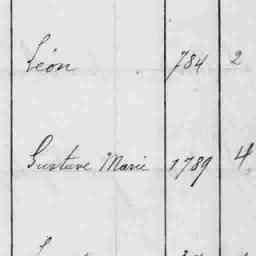 Léon 784 2
Gustave Marie 1789 4